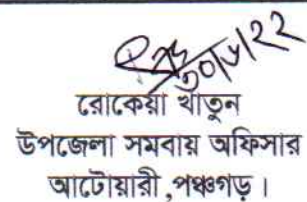 ৩০/৬/২২
রোকেয়া খাতুন
উপজেলা সমবায় অফিসার
আটোয়ারী ,পঞ্চগড় ।